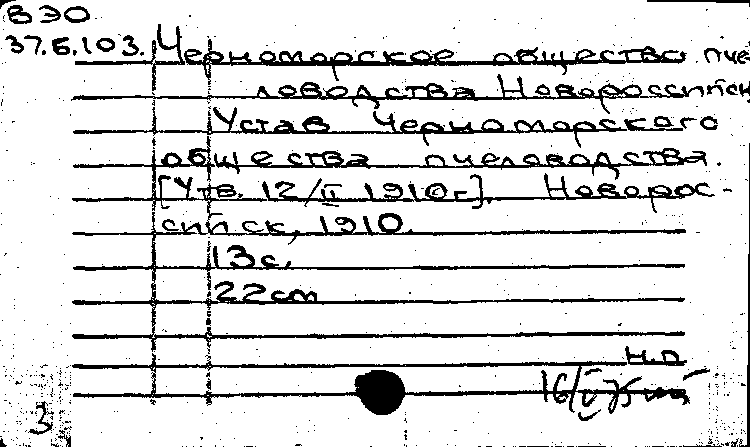 ВЭО
37.Б.103. Черноморское общество пче-
ловодства Новороссийск
Устав Черноморского
общества пчеловодства.
[Утв. 12/II 1910г.]. Новорос-
сийск, 1910.
13с.
22cm
Н.П
16/V 75
3